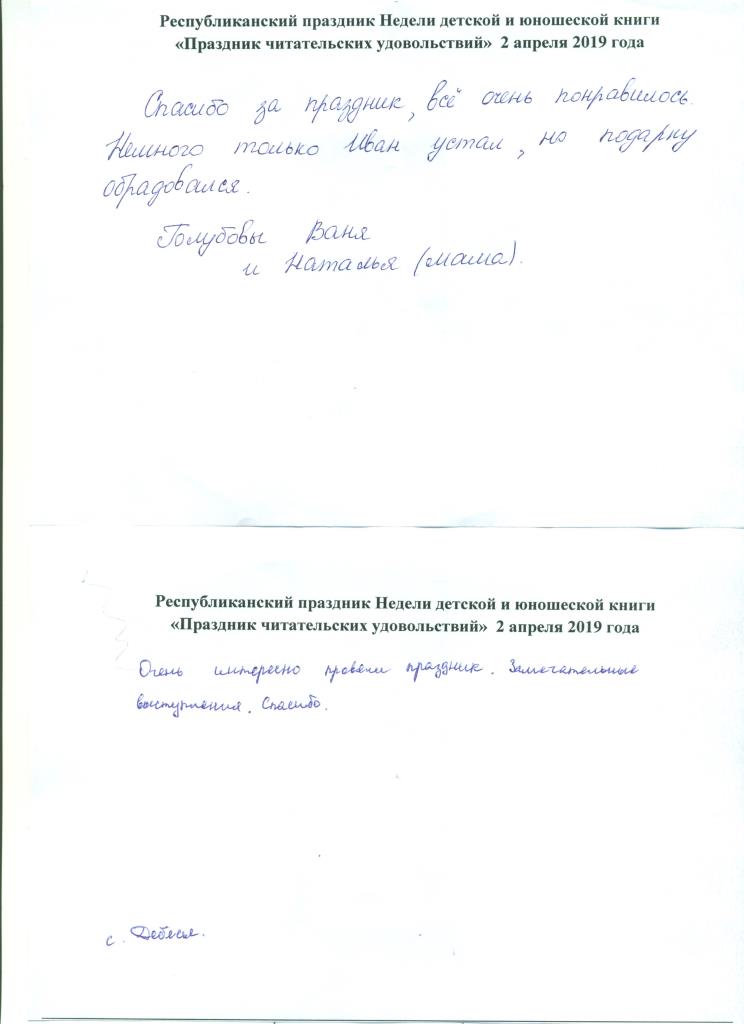 Республиканский праздник Недели детской и юношеской книги
«Праздник читательских удовольствий» 2 апреля 2019 года
Спасибо за праздник, всё очень понравилось.
Немного только Иван устал, но подарку
обрадовался.
Голубовы Ваня
и Наталья (мама).
Республиканский праздник Недели детской и юношеской книги
«Праздник читательских удовольствий» 2 апреля 2019 года
Очень интересно провели праздник. Замечательные
выступления. Спасибо.
с. Дебесы.